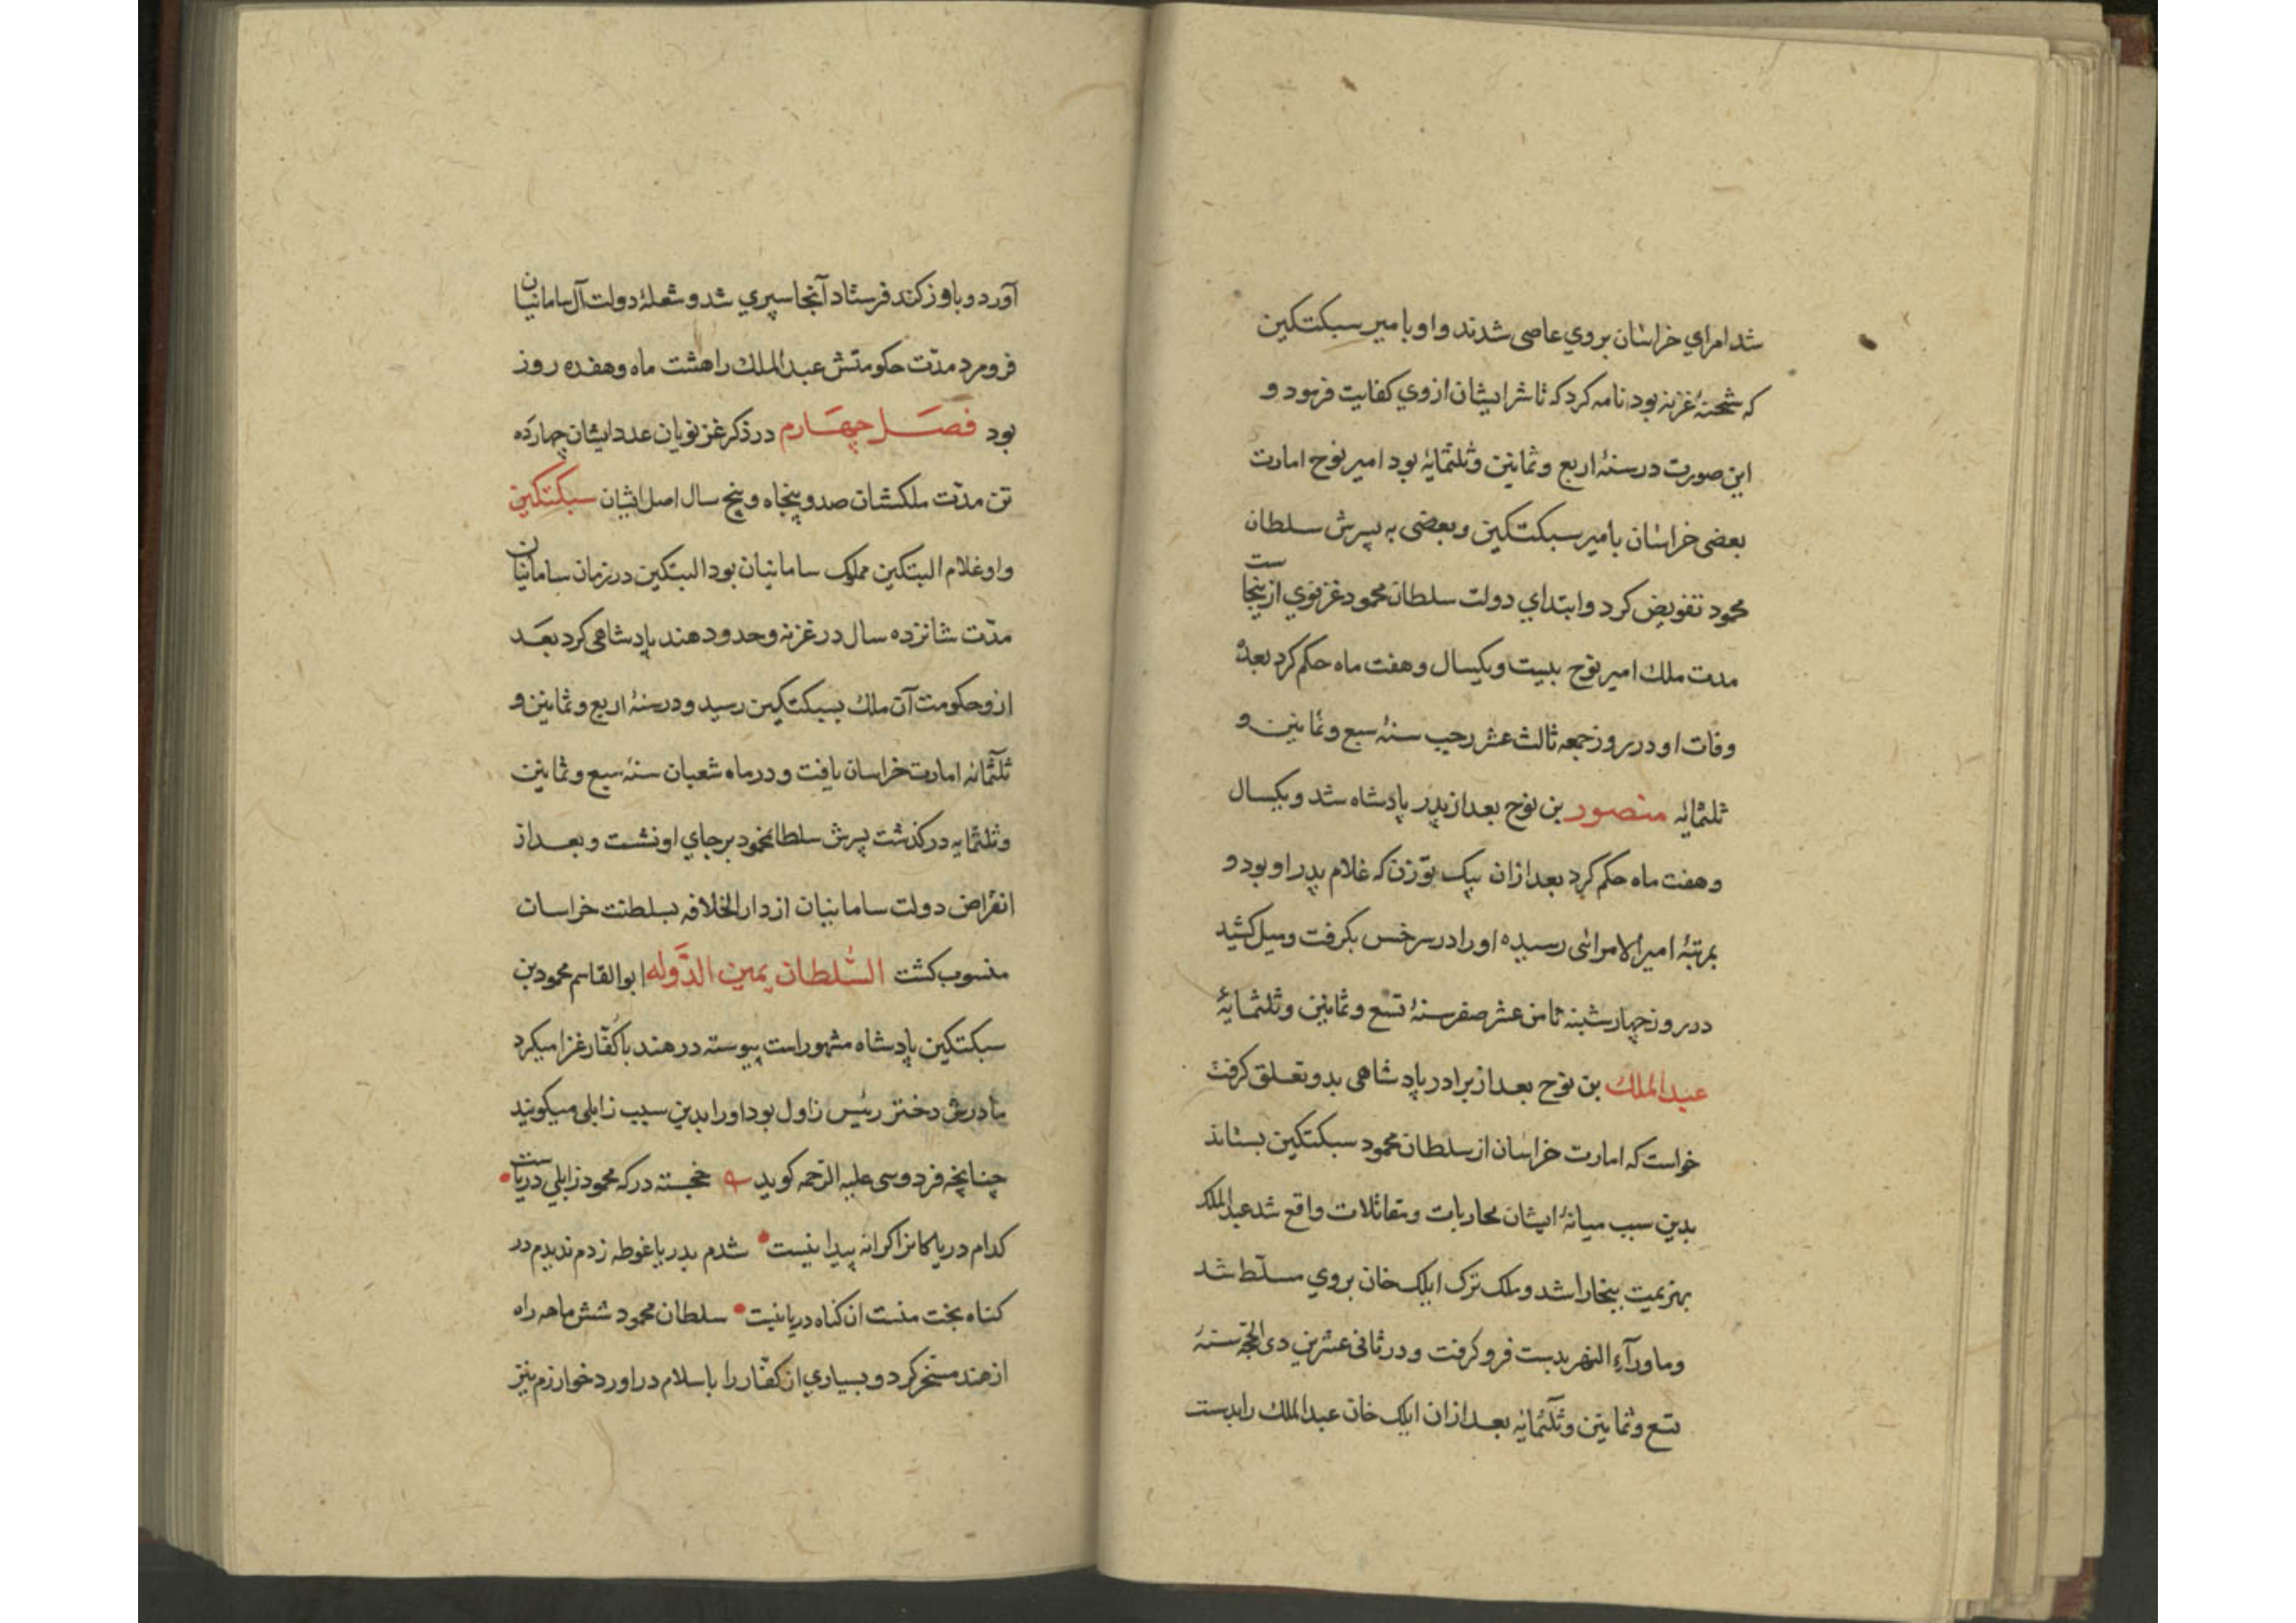 شد امراي خراسان بروي عاصی شدند و او با میر سبکتکین
که شحنهٔ غزنه بود نامه کرد که تا شر ایشان از وي کفایت فرمود و
این صورت در سنهٔ اربع و ثمانین و ثلثمایهٔ بود امیر نوح امارت
بعضی خراسان بامیر سبکتکین و بعضی به پسرش سلطان
محمود تفویض کرد و ابتداي دولت سلطان محمود غزنوي ازینجاست
مدت ملك امیر نوح بیست و یکسال و هفت ماه حکم کرد بعدهٔ
وفات او در روز جمعه ثالث عشر رجب سنهٔ سبع و ثمانین و
ثلثمایٔه منصور بن نوح بعد از پدر پادشاه شد و یکسال
و هفت ماه حکم کرد بعد ازان بیک توزن که غلام پدر او بود و
بمرتبهٔ امیر الامرائی رسیده او را در سرخس بکرفت و میل کشید
در روز چهارشنبه ثامن عشر صفر سنهٔ تسع و ثمانین و ثلثمایهٔ
عبد الملك بن نوح بعد از برادر پادشاهی بدو تعلق کرفت
خواست که امارت خراسان از سلطان محمود سبکتکین بستاند
بدین سبب میانهٔ ایشان محاربات و مقاتلات واقع شد عبد الملک
بهزیمت ببخارا شد و ملک ترک ایلک خان بروي مسلّط شد
و ماورآء النهر بدست فرو کرفت و در ثانی عشرین دی الحجّة سنهٔ
تسع و ثمانین و ثلثمائه بعد ازان ایلک خان عبد الملك را بدست
آورد و باوزکند فرستاد آنجا سپري شد و شعلهٔ دولت آل سامانیان
فرو مرد مدّت حکومتش عبد الملك را هشت ماه و هفده روز
بود فصل چهارم در ذکر غزنویان عدد ایشان چهارده
تن مدّت ملکشان صد و پنجاه و پنج سال اصل ایشان سبکتکین
و او غلام البتکین مملوک سامانیان بود البتکین در زمان سامانیان
مدّت شانزده سال در غزنه و حدود هند پادشاهی کرد بعد
از و حکومت آن ملك بسبکتکین رسید و در سنهٔ اربع و ثمانین و
ثلثمائه امارت خراسان یافت و در ماه شعبان سنهٔ سبع و ثمانین
و ثلثمایه در کذشت پسرش سلطانمحمود بر جاي او نشست و بعد از
انقراض دولت سامانیان از دار الخلافه بسلطنت خراسان
منسوب کشت السّلطان یمین الدّوله ابو القاسم محمود بن
سبکتکین پادشاه مشهور است پیوسته در هند با کفّار غزا میکرد
مادرش دختر رئیس زاول بود او را بدین سبب زابلی میکویند
چنانچه فردوسی علیه الرّحمه کوید خجسته درکه محمود زابلي دریاست
کدام دریا کانرا کرانه پیدا نیست شدم بدریا غوطه زدم ندیدم در
کناه بخت منست ان کناه دریا نیست سلطان محمود شش ماهه راه
از هند مسخّر کرد و بسیاري از کفّار را باسلام در اورد خوارزم نیز